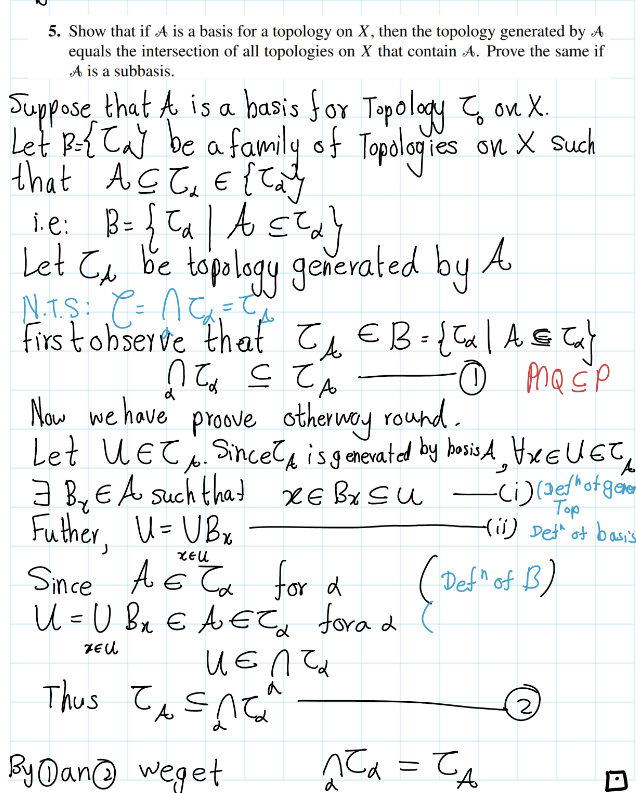 5. Show that if 𝒜 is a basis for a topology on X, then the topology generated by 𝒜
equals the intersection of all topologies on X that contain 𝒜. Prove the same if
𝒜 is a subbasis.
Suppose that A is a basis for Topology τ₀ on X.
Let B={τα} be a family of Topologies on X such
that A ⊆ τα ∈ {τα}
i.e: B = {τα | A ⊆ τα}
Let τ_A be topology generated by A
N.T.S: τ = ∩_α τα = τ_A
first observe that τ_A ∈ B = {τα | A ⊆ τα}
∩_α τα ⊆ τ_A — ① P∩Q ⊆ P
Now we have proove otherway round.
Let U ∈ τ_A. Since τ_A is generated by basis A, ∀x ∈ U ∈ τ_A
∃ Bx ∈ A such that x ∈ Bx ⊆ U — (i) (Defⁿ of gener
Top
Futher, U = ∪_{x∈U} Bx — (ii) Defⁿ of basis
Since A ∈ τα for α (Defⁿ of B)
U = ∪_{x∈U} Bx ∈ A ∈ τα for α (
U ∈ ∩_α τα
Thus τ_A ⊆ ∩_α τα — ②
By ① an ② we get ∩_α τα = τ_A